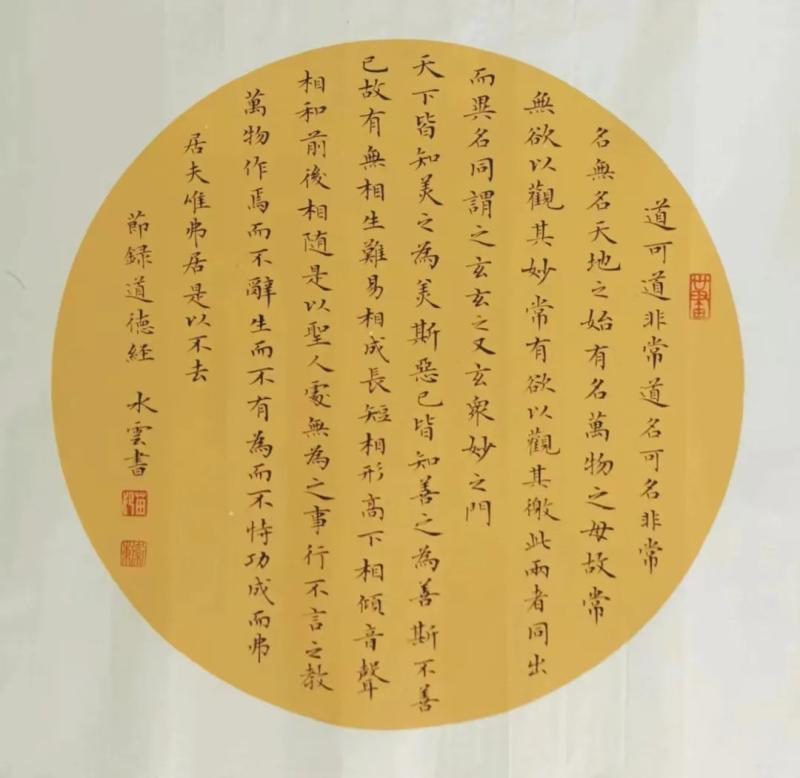 道可道非常道名可名非常
名無名天地之始有名萬物之母故常
無欲以觀其妙常有欲以觀其徼此兩者同出
而異名同謂之玄玄之又玄衆妙之門
天下皆知美之為美斯惡已皆知善之為善斯不善
已故有無相生難易相成長短相形高下相傾音聲
相和前後相隨是以聖人處無為之事行不言之教
萬物作焉而不辭生而不有為而不恃功成而弗
居夫唯弗居是以不去
節録道德経 水雲書